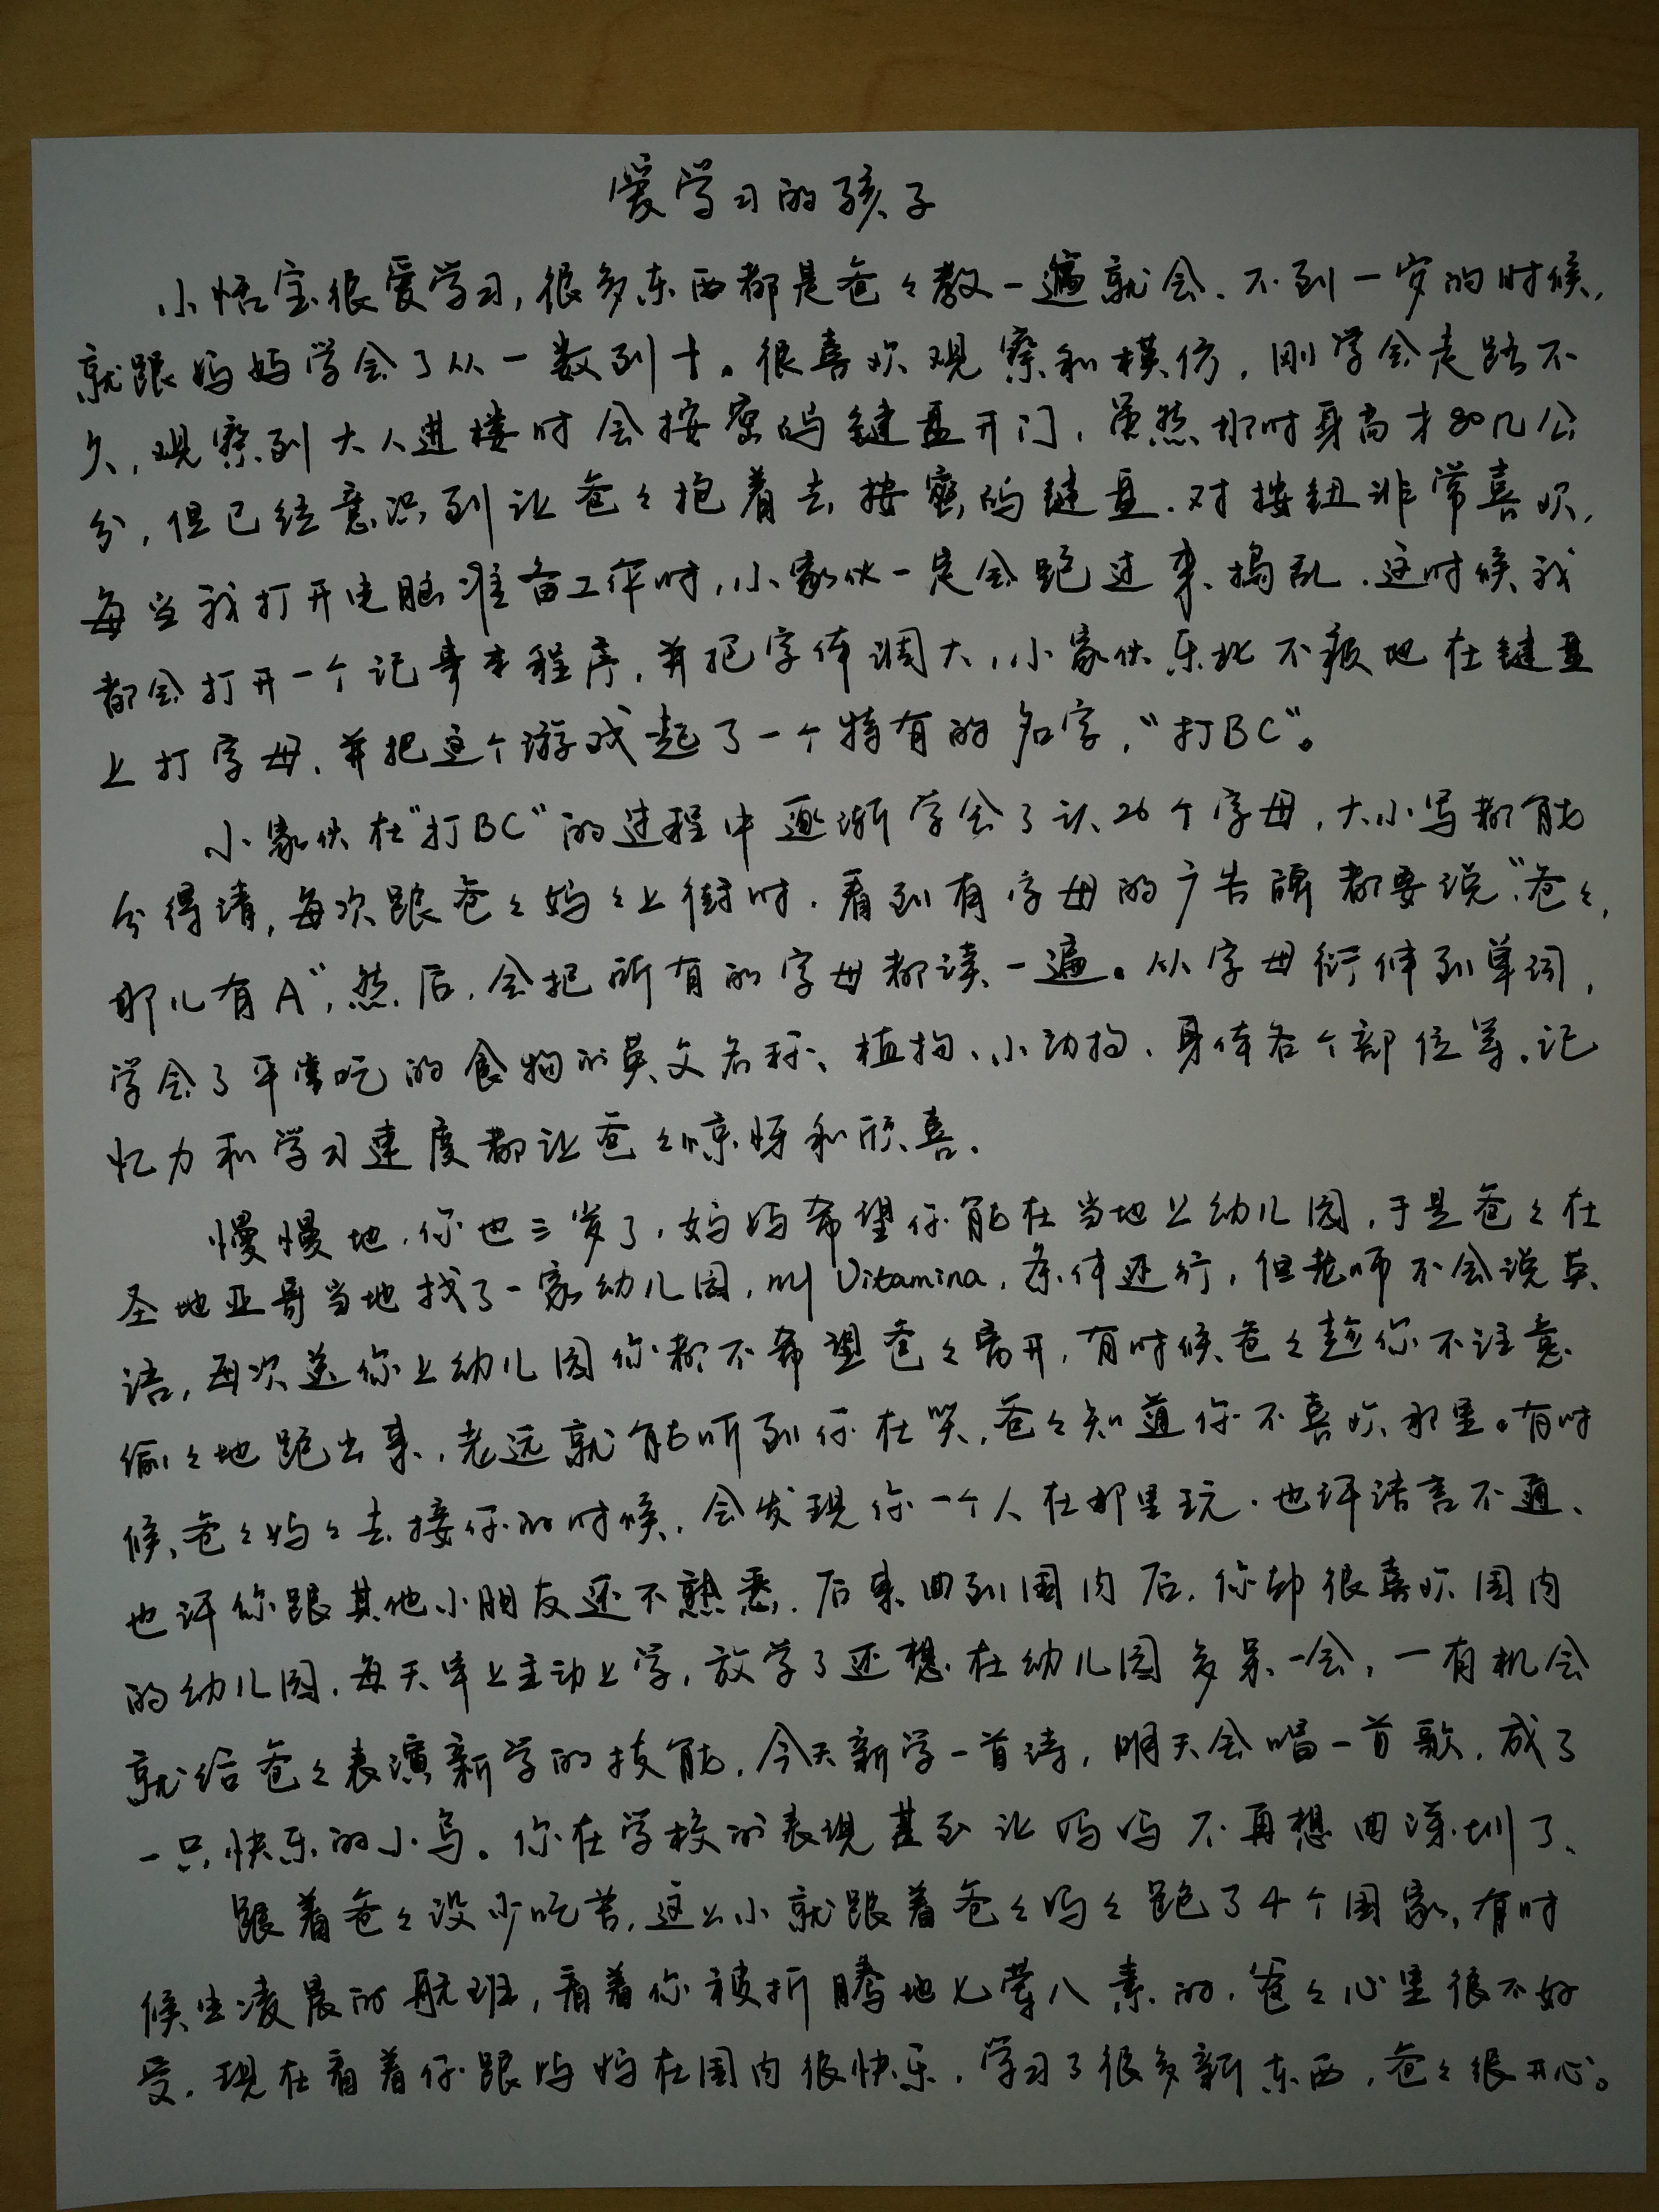 爱学习的孩子
小悟宝很爱学习，很多东西都是爸々教一遍就会、不到一岁的时候，
就跟妈妈学会了从一数到十。很喜欢观察和模仿，刚学会走路不
久，观察到大人进楼时会按密码键盘开门，虽然那时身高才80几公
分，但已经意识到让爸々抱着去按密码键盘．对按钮非常喜欢，
每当我打开电脑准备工作时，小家伙一定会跑过来捣乱．这时候我
都会打开一个记事本程序，并把字体调大，小家伙乐此不疲地在键盘
上打字母，并把这个游戏起了一个特有的名字，“打BC”。
小家伙在“打BC”的过程中逐渐学会了认26个字母，大小写都能
分得清，每次跟爸々妈々上街时．看到有字母的广告牌都要说“爸々，
那儿有A”，然后，会把所有的字母都读一遍。从字母衍伸到单词，
学会了平常吃的食物的英文名称、植物、小动物、身体各个部位等，记
忆力和学习速度都让爸々惊讶和欣喜．
慢慢地，你也三岁了，妈妈希望你能在当地上幼儿园，于是爸々在
圣地亚哥当地找了一家幼儿园，叫Vitamina，条件还行，但老师不会说英
语，每次送你上幼儿园你都不希望爸々离开，有时候爸々趁你不注意
偷々地跑出来，老远就能听到你在哭，爸々知道你不喜欢那里。有时
候，爸々妈々去接你的时候，会发现你一个人在那里玩．也许语言不通、
也许你跟其他小朋友还不熟悉．后来回到国内后，你却很喜欢国内
的幼儿园，每天早上主动上学，放学了还想在幼儿园多呆一会，一有机会
就给爸々表演新学的技能，今天新学一首诗，明天会唱一首歌，成了
一只快乐的小鸟。你在学校的表现甚至让妈妈不再想回深圳了、
跟着爸々没少吃苦，这么小就跟着爸々妈々跑了4个国家，有时
候坐凌晨的航班，看着你被折腾地七荤八素的，爸々心里很不好
受．现在看着你跟妈妈在国内很快乐，学习了很多新东西，爸々很开心。